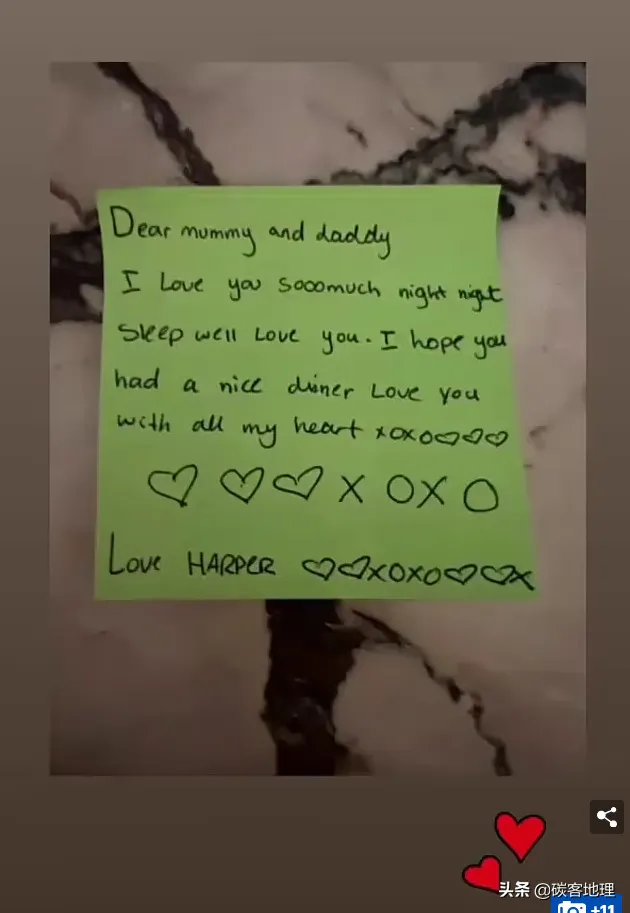 Dear mummy and daddy
I Love you sooomuch night night
Sleep well Love you. I hope you
had a nice dinner Love you
with all my heart xoxo♡♡♡
♡ ♡ ♡ X O X O
Love HARPER ♡♡xoxo♡♡x
头条 @碳客地理
+11